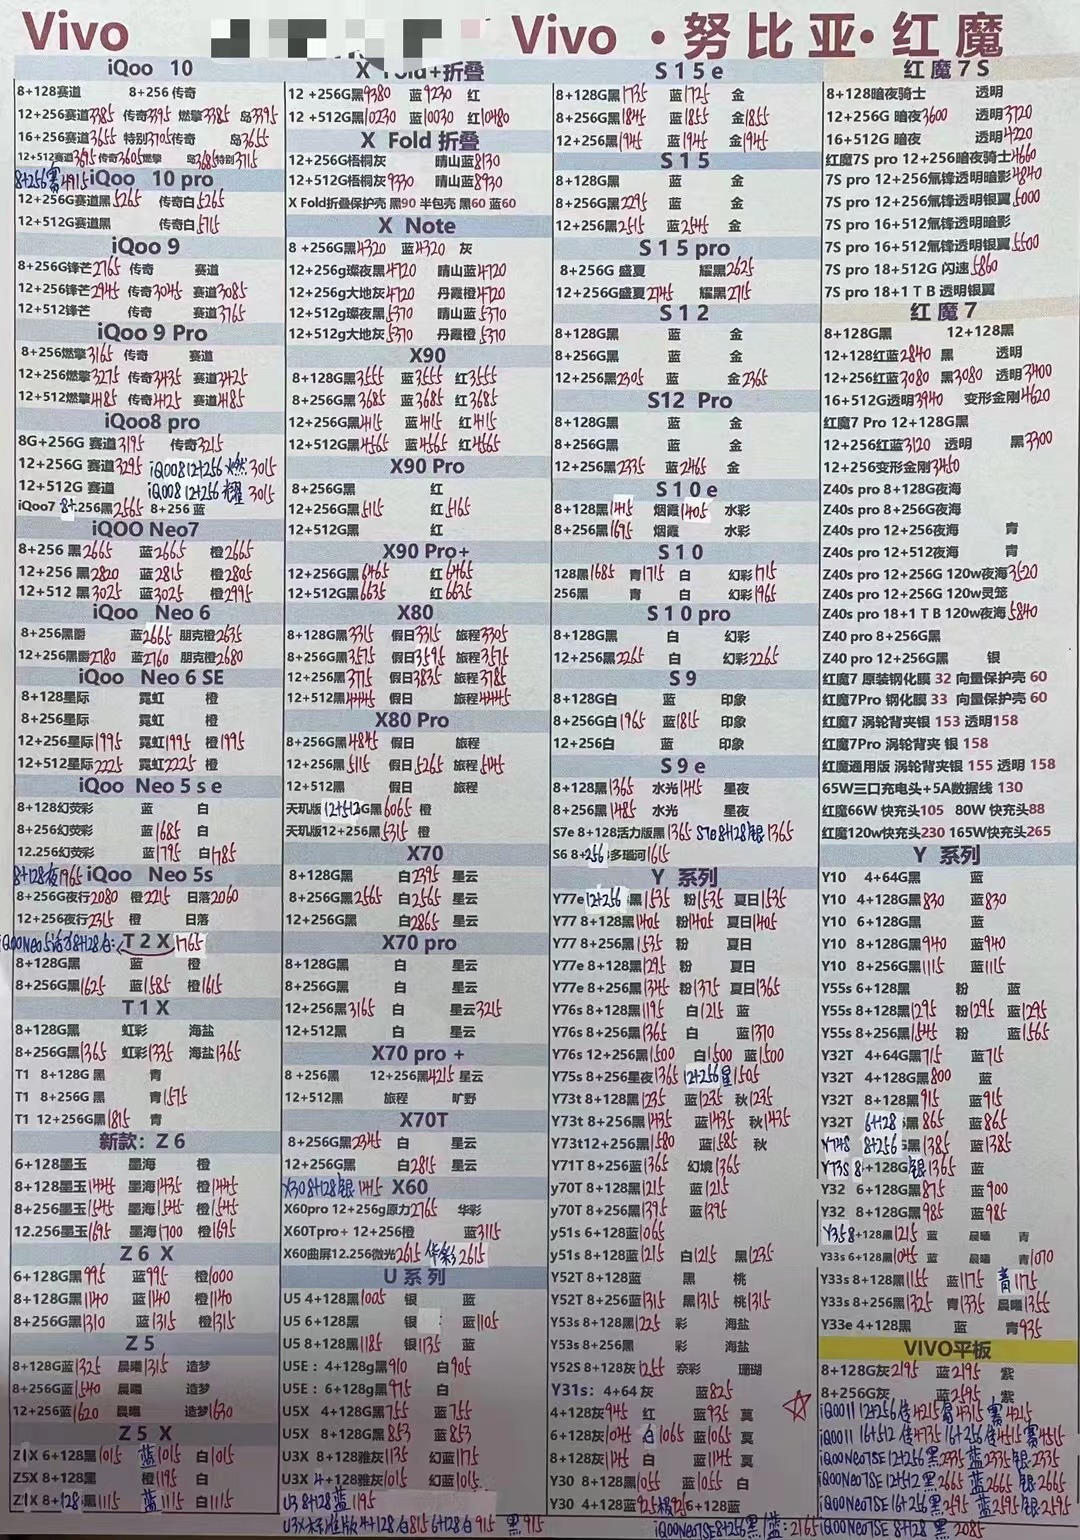 Vivo
Vivo ·努比亚·红魔
iQoo 10
8+128赛道 8+256传奇
12+256赛道3385 传奇3395 燃擎3385 岛3395
16+256赛道3655 特别3705传奇 岛3655
12+512赛道3695传奇3605燃擎 岛3685特别3715
8+256赛4915
iQoo 10 pro
12+256G赛道黑5265 传奇白5265
12+512G赛道黑 传奇白5715
iQoo 9
8+256G锋芒2765 传奇 赛道
12+256锋芒2945 传奇3045 赛道3085
12+512锋芒 传奇 赛道3765
iQoo 9 Pro
8+256燃擎3165 传奇 赛道
12+256燃擎3275 传奇3435 赛道3425
12+512燃擎4185 传奇4125 赛道4185
iQoo8 pro
8G+256G 赛道3195 传奇3215
12+256G 赛道3295 iQOO8 12+256 燃 3015
12+512G 赛道 iQOO8 12+256 耀 3015
iQoo7 8+256黑2565 8+256 蓝
iQOO Neo7
8+256 黑2665 蓝2665 橙2665
12+256 黑2820 蓝2815 橙2805
12+512 黑3025 蓝3025 橙2995
iQoo Neo 6
8+256黑爵 蓝2665 朋克橙2635
12+256黑爵2780 蓝2760 朋克橙2680
iQoo Neo 6 SE
8+128星际 霓虹 橙
8+256星际 霓虹 橙
12+256星际1995 霓虹1995 橙1995
12+512星际2225 霓虹2225 橙
iQoo Neo 5 s e
8+128幻荧彩 蓝 白
8+256幻荧彩 蓝1685 白
12.256幻荧彩 蓝1795 白1785
8+128夜1965
iQoo Neo 5s
8+256G夜行2080 橙2215 日落2060
12+256夜行2315 橙 日落
iQOONeo5活力8+128白:
T 2 X 1765
8+128G黑 蓝 橙
8+256G黑1625 蓝1585 橙1615
T 1 X
8+128G黑 虹彩 海盐
8+256G黑1365 虹彩1335 海盐1365
T1 8+128G 黑 青
T1 8+256G 黑 青1575
T1 12+256G黑1815 青
新款: Z 6
6+128墨玉 墨海 橙
8+128墨玉1445 墨海1435 橙1445
8+256墨玉1545 墨海1545 橙1545
12.256墨玉1695 墨海1700 橙1695
Z 6 X
6+128G黑995 蓝995 橙1000
8+128G黑1140 蓝1140 橙1140
8+256G黑1310 蓝1315 橙1315
Z 5
8+128G蓝1325 晨曦1315 造梦
8+256G蓝1540 晨曦 造梦
12+256蓝1620 晨曦 造梦1630
Z 5 X
Z1X 6+128黑1015 蓝1015 白1015
Z5X 8+128黑 橙1195 白
Z1X 8+128黑1115 蓝1115 白1115
X Fold+折叠
12 +256G黑9380 蓝9230 红
12 +512G黑10230 蓝10030 红10480
X Fold 折叠
12+256G梧桐灰 晴山蓝8130
12+512G梧桐灰9330 晴山蓝8930
X Fold折叠保护壳 黑90 半包壳 黑60 蓝60
X Note
8 +256G黑4320 蓝4320 灰
12+256g璨夜黑4720 晴山蓝4720
12+256g大地灰4720 丹霞橙4720
12+512g璨夜黑5370 晴山蓝5370
12+512g大地灰5370 丹霞橙5370
X90
8+128G黑3555 蓝3555 红3555
8+256G黑3685 蓝3685 红3685
12+256G黑4115 蓝4115 红4115
12+512G黑4565 蓝4565 红4665
X90 Pro
8+256G黑 红
12+256G黑5115 红5165
12+512G黑 红
X90 Pro+
12+256G黑6465 红6465
12+512G黑6635 红6635
X80
8+128G黑3315 假日3315 旅程3305
8+256G黑3575 假日3595 旅程3575
12+256黑3775 假日3835 旅程3785
12+512黑4445 假日 旅程4445
X80 Pro
8+256G黑4845 假日 旅程
12+256黑5115 假日5265 旅程5145
12+512黑 假日 旅程
天玑版12+512G黑6065 橙
天玑版12+256黑5315 橙
X70
8+128G黑 白2395 星云
8+256G黑2565 白2565 星云
12+256G黑 白2865 星云
X70 pro
8+128G黑 白 星云
8+256G黑 白 星云
12+256黑3165 白 星云3215
12+512黑 白 星云
X70 pro +
8 +256黑 12+256黑4215 星云
12+512黑 旅程 旷野
X70T
8+256G黑2345 白 星云
12+256G黑 白2815 星云
X30 8+128银 1415 X60
X60pro 12+256g原力2765 华彩
X60Tpro+ 12+256橙 蓝3115
X60曲屏12.256微光2615 华彩2615
U 系列
U5 4+128黑1005 银 蓝
U5 6+128黑 银 蓝1105
U5 8+128黑1185 银1135 蓝
U5E: 4+128g黑910 白905
U5E: 6+128g黑975 白
U5X 4+128G黑755 蓝755
U5X 8+128G黑853 蓝853
U3X 8+128雅灰1135 幻蓝1175
U3X 4+128雅灰1015 幻蓝1015
U3 8+128蓝 1195
U3X标准版4+128白815 6+128白915 黑915
S 1 5 e
8+128G黑1735 蓝1725 金
8+256G黑1845 蓝1855 金1855
12+256黑1945 蓝1945 金1945
S 1 5
8+128G黑 蓝 金
8+256G黑2295 蓝 金
12+256黑2515 蓝2545 金
S 1 5 pro
8+256G 盛夏 耀黑2625
12+256G盛夏2745 耀黑2715
S 1 2
8+128G黑 蓝 金
8+256G黑 蓝 金
12+256黑2305 蓝 金2365
S12 Pro
8+128G黑 蓝 金
8+256G黑 蓝 金
12+256黑2335 蓝2465 金
S 1 0 e
8+128黑1415 烟霞1405 水彩
8+256黑1695 烟霞 水彩
S 1 0
128黑1685 青1715 白 幻彩1715
256黑 青 白 幻彩1965
S 1 0 pro
8+128G黑 白 幻彩
12+256黑2265 白 幻彩2265
S 9
8+128G白 蓝 印象
8+256G白1965 蓝1815 印象
12+256白 蓝 印象
S 9 e
8+128黑1365 水光1415 星夜
8+256黑1485 水光 星夜
S7e 8+128活力版黑1365 S7e 8+128银1365
S6 8+256多瑙河1615
Y 系列
Y77e 12+256黑1535 粉1535 夏日1535
Y77 8+128黑1405 粉1405 夏日1405
Y77 8+256黑1535 粉 夏日
Y77e 8+128黑1295 粉 夏日
Y77e 8+256黑1345 粉1375 夏日1365
Y76s 8+128黑1195 白1215 蓝
Y76s 8+256黑1365 白 蓝1370
Y76s 12+256黑1500 白1500 蓝1500
Y75s 8+256星夜1365 12+256星1505
Y73t 8+128黑1235 蓝1235 秋1235
Y73t 8+256黑1435 蓝1435 秋1435
Y73t12+256黑1580 蓝1585 秋
Y71T 8+256蓝1365 幻境1365
y70T 8+128黑1215 蓝1215
y70T 8+256黑1395 蓝1395
y51s 6+128蓝1065
y51s 8+128蓝1215 白1215 黑1235
Y52T 8+128蓝 黑 桃
Y52T 8+256蓝1315 黑1315 桃1315
Y53s 8+128黑1225 彩 海盐
Y53s 8+256黑 彩 海盐
Y52S 8+128灰1255 奈彩 珊瑚
Y31s: 4+64 灰 蓝825
4+128灰945 红 蓝935 莫
6+128灰1045 白1065 蓝1065 莫
8+128灰1145 白 蓝1145 莫
Y30 8+128黑1055 蓝1055 白
Y30 4+128蓝925 粉925 6+128蓝
iQOONeo7SE8+256黑/蓝:2165
红 魔 7 S
8+128暗夜骑士 透明
12+256G 暗夜3600 透明3720
16+512G 暗夜 透明4220
红魔7S pro 12+256暗夜骑士4660
7S pro 12+256氘锋透明暗影4840
7S pro 12+256氘锋透明银翼5000
7S pro 16+512氘锋透明暗影
7S pro 16+512氘锋透明银翼5500
7S pro 18+512G 闪速5860
7S pro 18+1 T B 透明银翼
红 魔 7
8+128G黑 12+128黑
12+128红蓝2840 黑 透明
12+256红蓝3080 黑3080 透明3400
16+512G透明3940 变形金刚4620
红魔7 Pro 12+128G黑
12+256红蓝3120 透明 黑3300
12+256变形金刚3450
Z40s pro 8+128G夜海
Z40s pro 8+256G夜海
Z40s pro 12+256夜海 青
Z40s pro 12+512夜海 青
Z40s pro 12+256G 120w夜海3520
Z40s pro 12+256G 120w灵笼
Z40s pro 18+1 T B 120w夜海5840
Z40 pro 8+256G黑
Z40 pro 12+256G黑 银
红魔7 原装钢化膜 32 向量保护壳 60
红魔7Pro 钢化膜 33 向量保护壳 60
红魔7 涡轮背夹银 153 透明158
红魔7Pro 涡轮背夹 银 158
红魔通用版 涡轮背夹银 155 透明 158
65W三口充电头+5A数据线 130
红魔66W 快充头105 80W 快充头88
红魔120w快充头230 165W快充头265
Y 系列
Y10 4+64G黑 蓝
Y10 4+128G黑830 蓝830
Y10 6+128G黑 蓝
Y10 8+128G黑940 蓝940
Y10 8+256G黑1115 蓝1115
Y55s 6+128黑 粉 蓝
Y55s 8+128黑1295 粉1295 蓝1295
Y55s 8+256黑1545 粉 蓝1565
Y32T 4+64G黑715 蓝715
Y32T 4+128G黑800 蓝
Y32T 8+128黑915 蓝915
Y32T 6+128黑865 蓝865
Y74S 8+256黑1385 蓝1385
Y73S 8+128G银1365 蓝
Y32 6+128G黑875 蓝900
Y32 8+128G黑985 蓝985
Y35 8+128黑1215 蓝 晨曦 青
Y33s 6+128黑1045 蓝 晨曦 青1070
Y33s 8+128黑1155 蓝1175 青1175
Y33s 8+256黑1325 青1335 晨曦1355
Y33e 4+128黑 蓝 青935
VIVO平板
8+128G灰2195 蓝2195 紫
8+256G灰 蓝2595 紫
iQOO11 12+256传4215岛4315 赛4215
iQOO11 16+512传4735 16+256传4515 赛4515
iQOONeo7SE 12+256黑2335 蓝2335 银2335
iQOONeo7SE 12+512黑2665 蓝2665 银2665
iQOONeo7SE 16+256黑2595 蓝2595 银2595
iQOONeo7SE 8+128 黑 2085